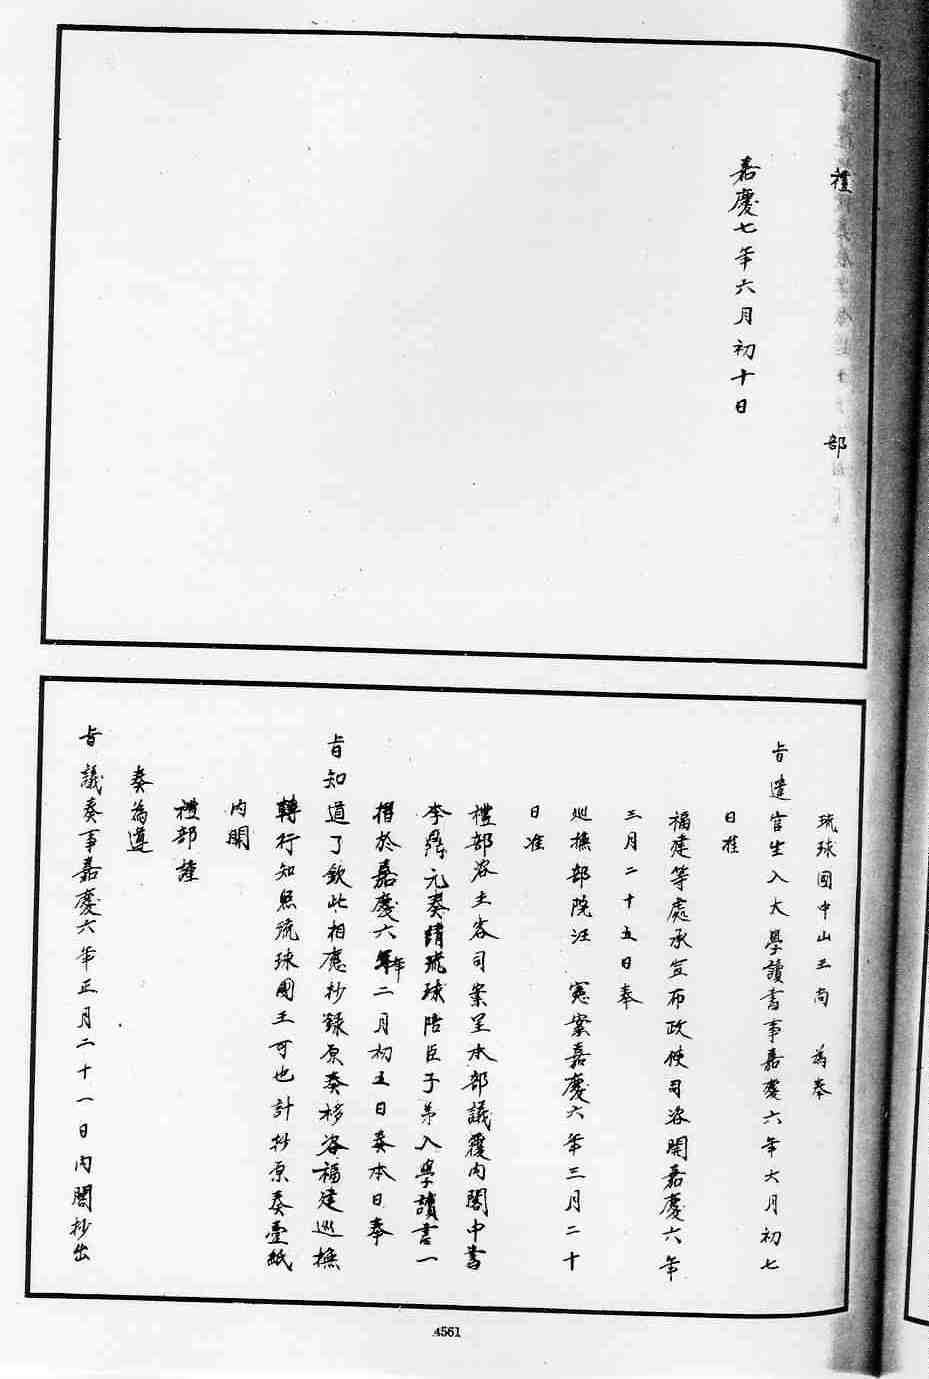 禮部
嘉慶七年六月初十日
琉球國中山王尚 為奉
旨遣官生入太學讀書事嘉慶六年六月初七
日准
福建等處承宣布政使司咨開嘉慶六年
三月二十五日奉
巡撫部院汪 憲案嘉慶六年三月二十
日准
禮部咨主客司案呈本部議覆內閣中書
李鼎元奏請琉球陪臣子弟入學讀書一
摺於嘉慶六年二月初五日奏本日奉
旨知道了欽此相應抄錄原奏移咨福建巡撫
轉行知照琉球國王可也計抄原奏壹紙
內開
禮部謹
奏為遵
旨議奏事嘉慶六年正月二十一日內閣抄出
4561